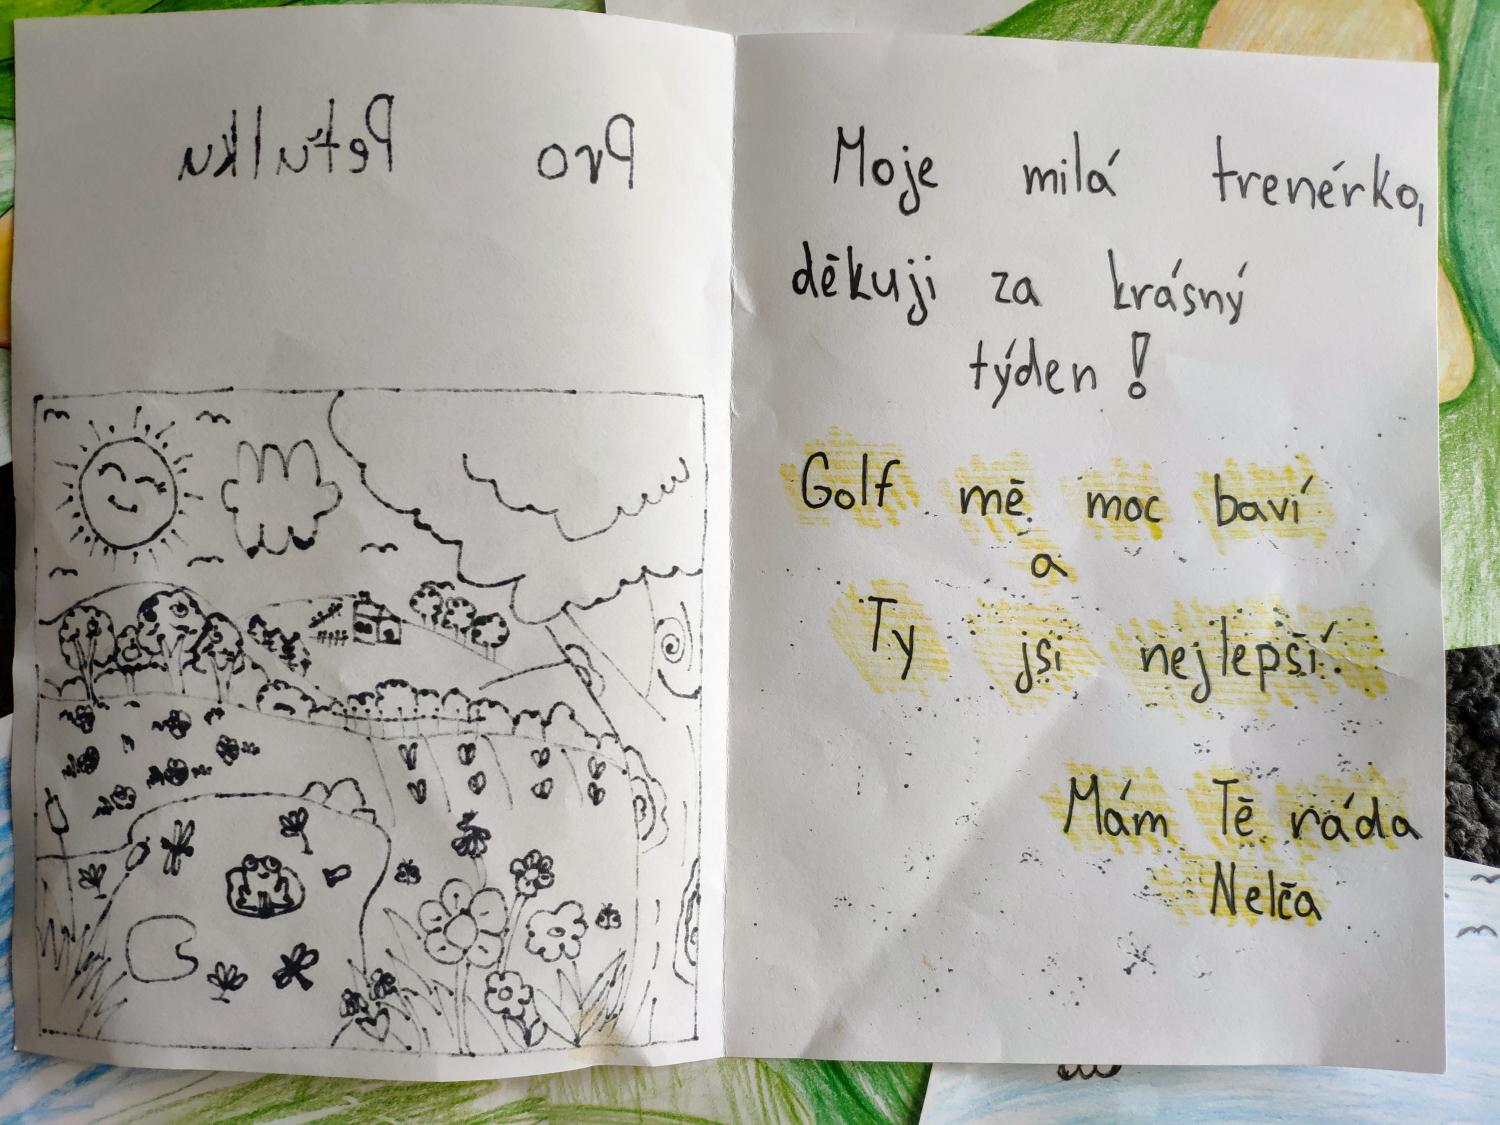 Pro Petulku
Moje milá trenérko,
děkuji za krásný
týden!
Golf mě moc baví
a
Ty jsi nejlepší.
Mám Tě ráda
Nelča